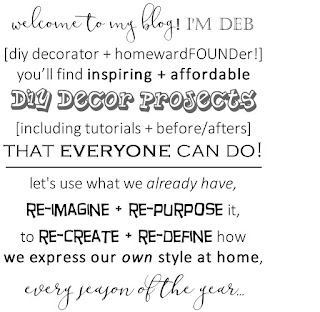 welcome to my blog! I'M DEB
[diy decorator + homewardFOUNDer!]
you'll find inspiring + affordable
DiY DECOR PROJECTS
[including tutorials + before/afters]
THAT EVERYONE CAN DO!
let's use what we already have,
RE-IMAGINE + RE-PURPOSE it,
to RE-CREATE + RE-DEFINE how
we express our own style at home,
every season of the year...